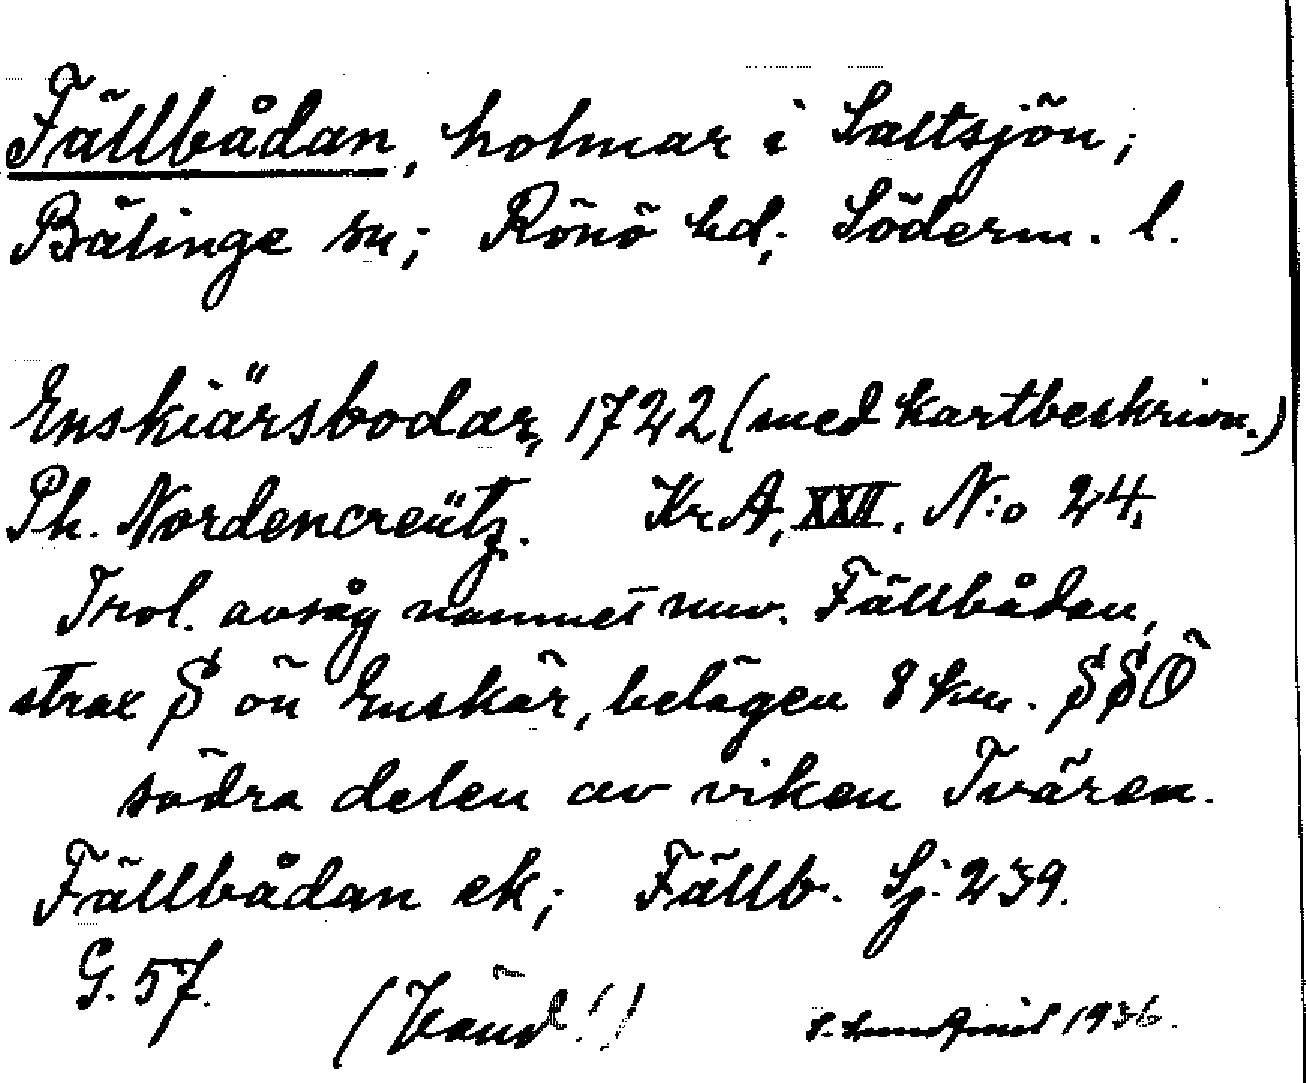 Fällbådan, holmar i Saltsjön;
Bälinge sn; Rönö hd; Söderm. l.
Enskiärsbodar, 1722 (med kartbeskrivn.)
Ph. Nordencreütz. Kr. A, XXII. N:o 24.
Trol. avsåg namnet nuv. Fällbådan,
strax S ön Enskär, belägen 8 km. SSO
södra delen av viken Tvären.
Fällbådan ek; Fällb. Sj. 239.
G. 57.
(Vänd!)
1936.